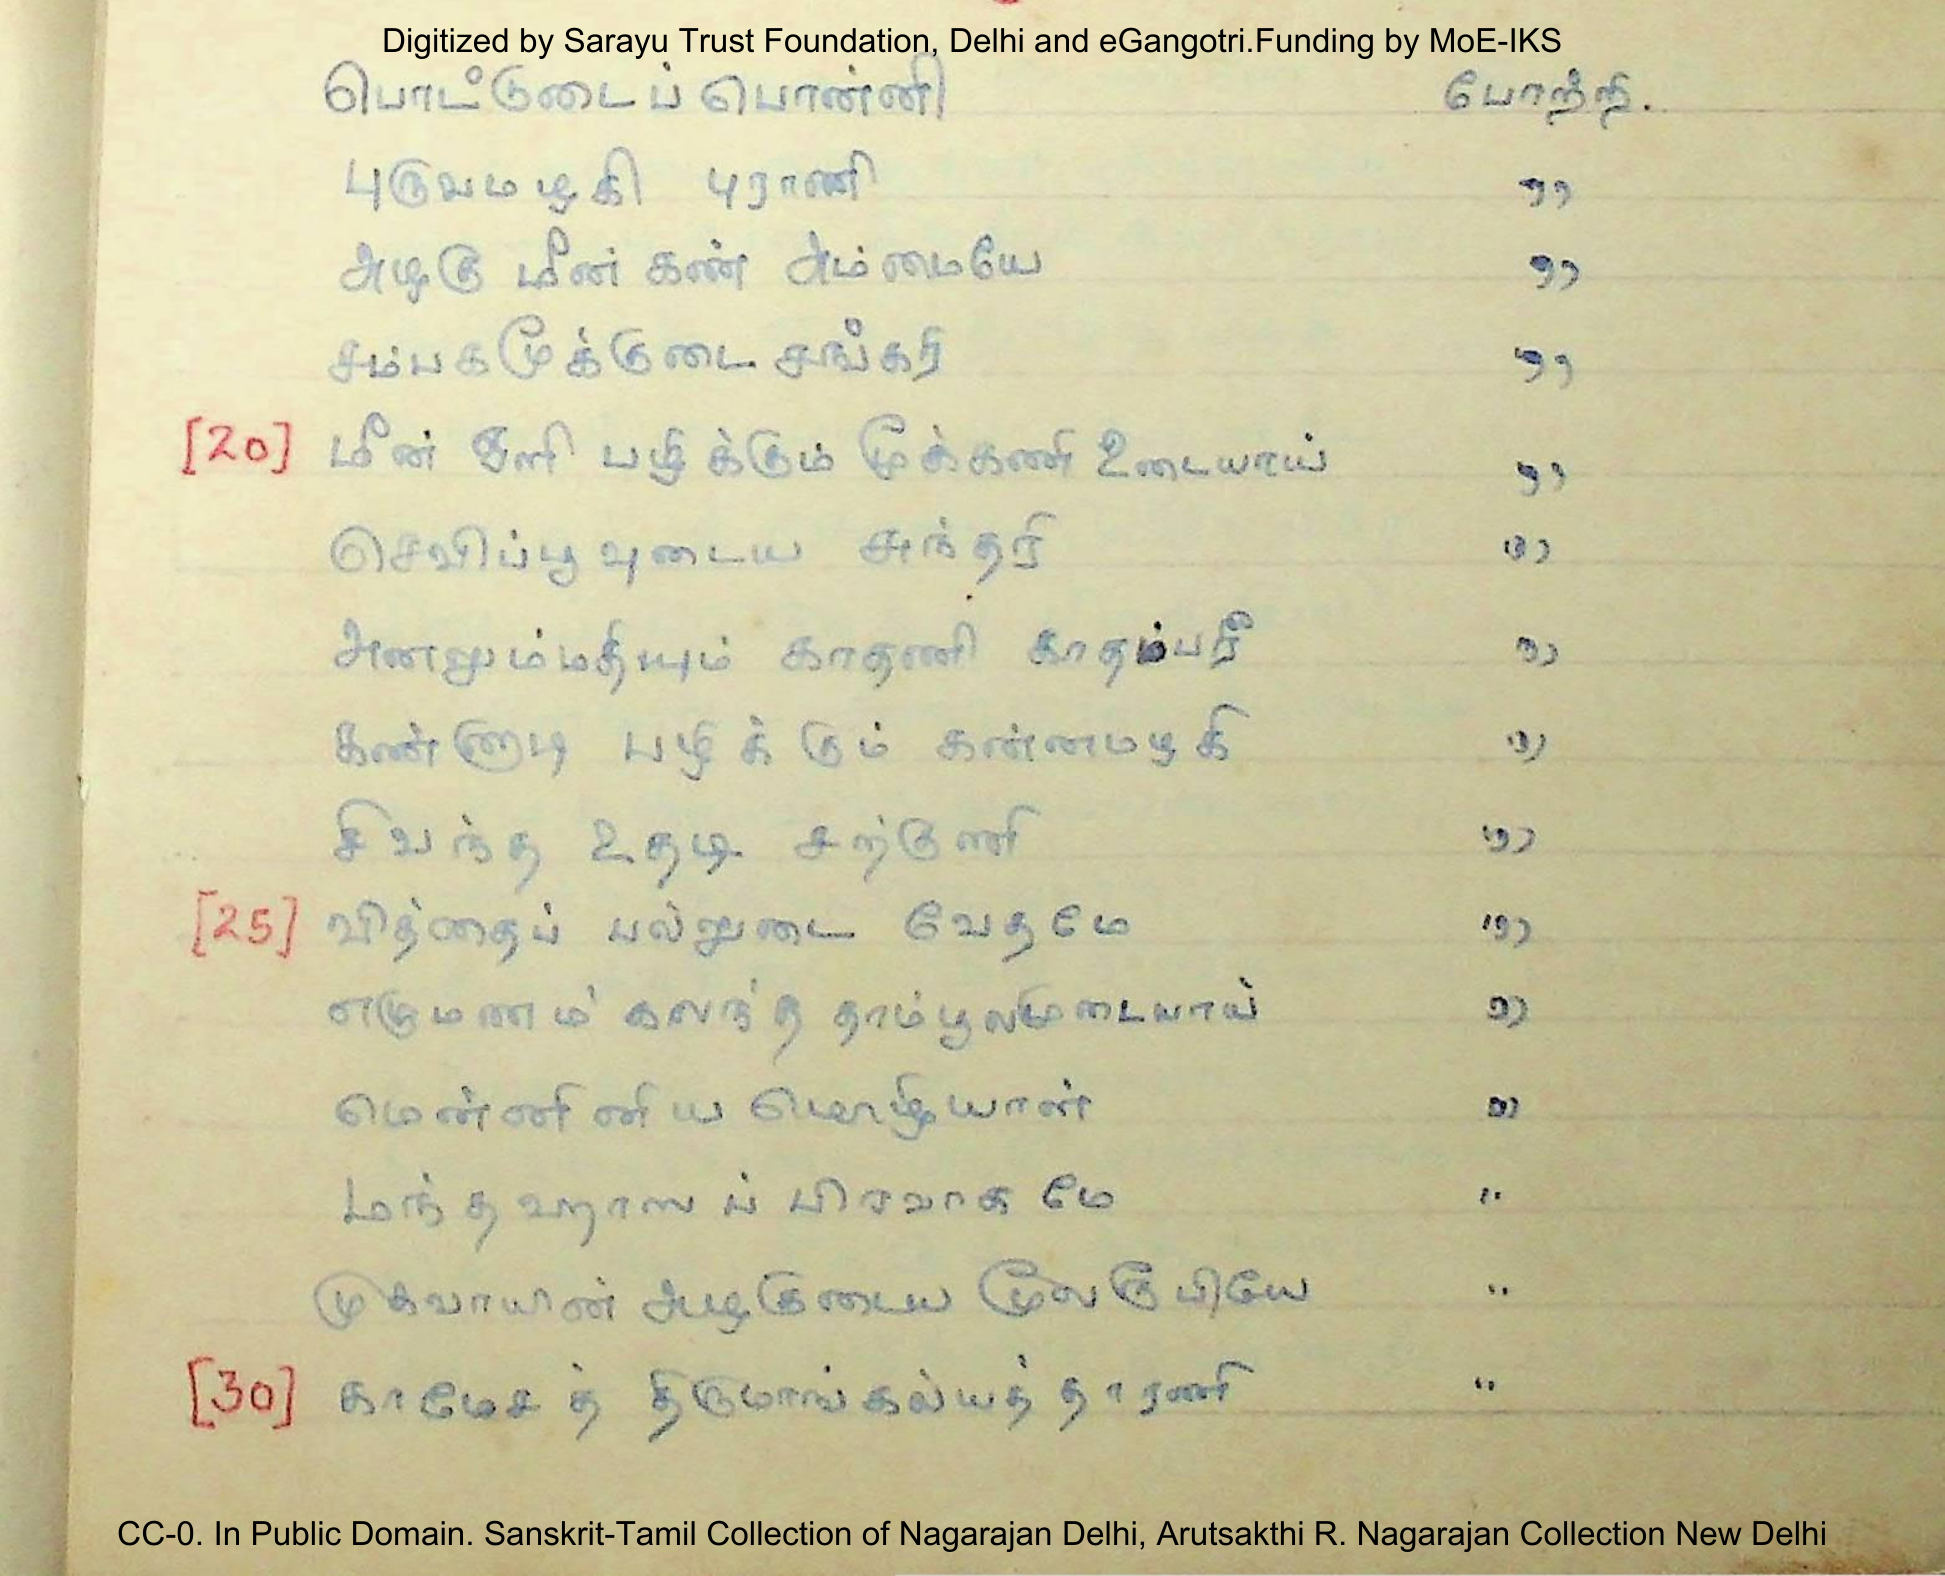 Digitized by Sarayu Trust Foundation, Delhi and eGangotri.Funding by MoE-IKS
பொட்டுடைப் பொன்னி போற்றி.
புருவமழகி புராணி ,,
அழகு மீன் கண் அம்மையே ,,
சம்பகமூக்குடை சங்கரி ,,
[20] மீன் ஒளி பழிக்கும் மூக்கணி உடையாய் ,,
செவிப்பூவுடைய சுந்தரி ,,
அனலும்மதியும் காதணி காதம்பரீ ,,
கண்ணாடி பழிக்கும் கன்னமழகி ,,
சிவந்த உதடி சற்குணி ,,
[25] வித்தைப் பல்லுடை வேதமே ,,
எழுமணம் கலந்த தாம்பூலமுடையாய் ,,
மென்னினிய மொழியாள் ,,
மந்தஹாஸப் பிரவாகமே ,,
முகவாயின் அழகுடைய மூலரூபியே ,,
[30] காமேசத் திருமாங்கல்யத் தாரணி ,,
CC-0. In Public Domain. Sanskrit-Tamil Collection of Nagarajan Delhi, Arutsakthi R. Nagarajan Collection New Delhi